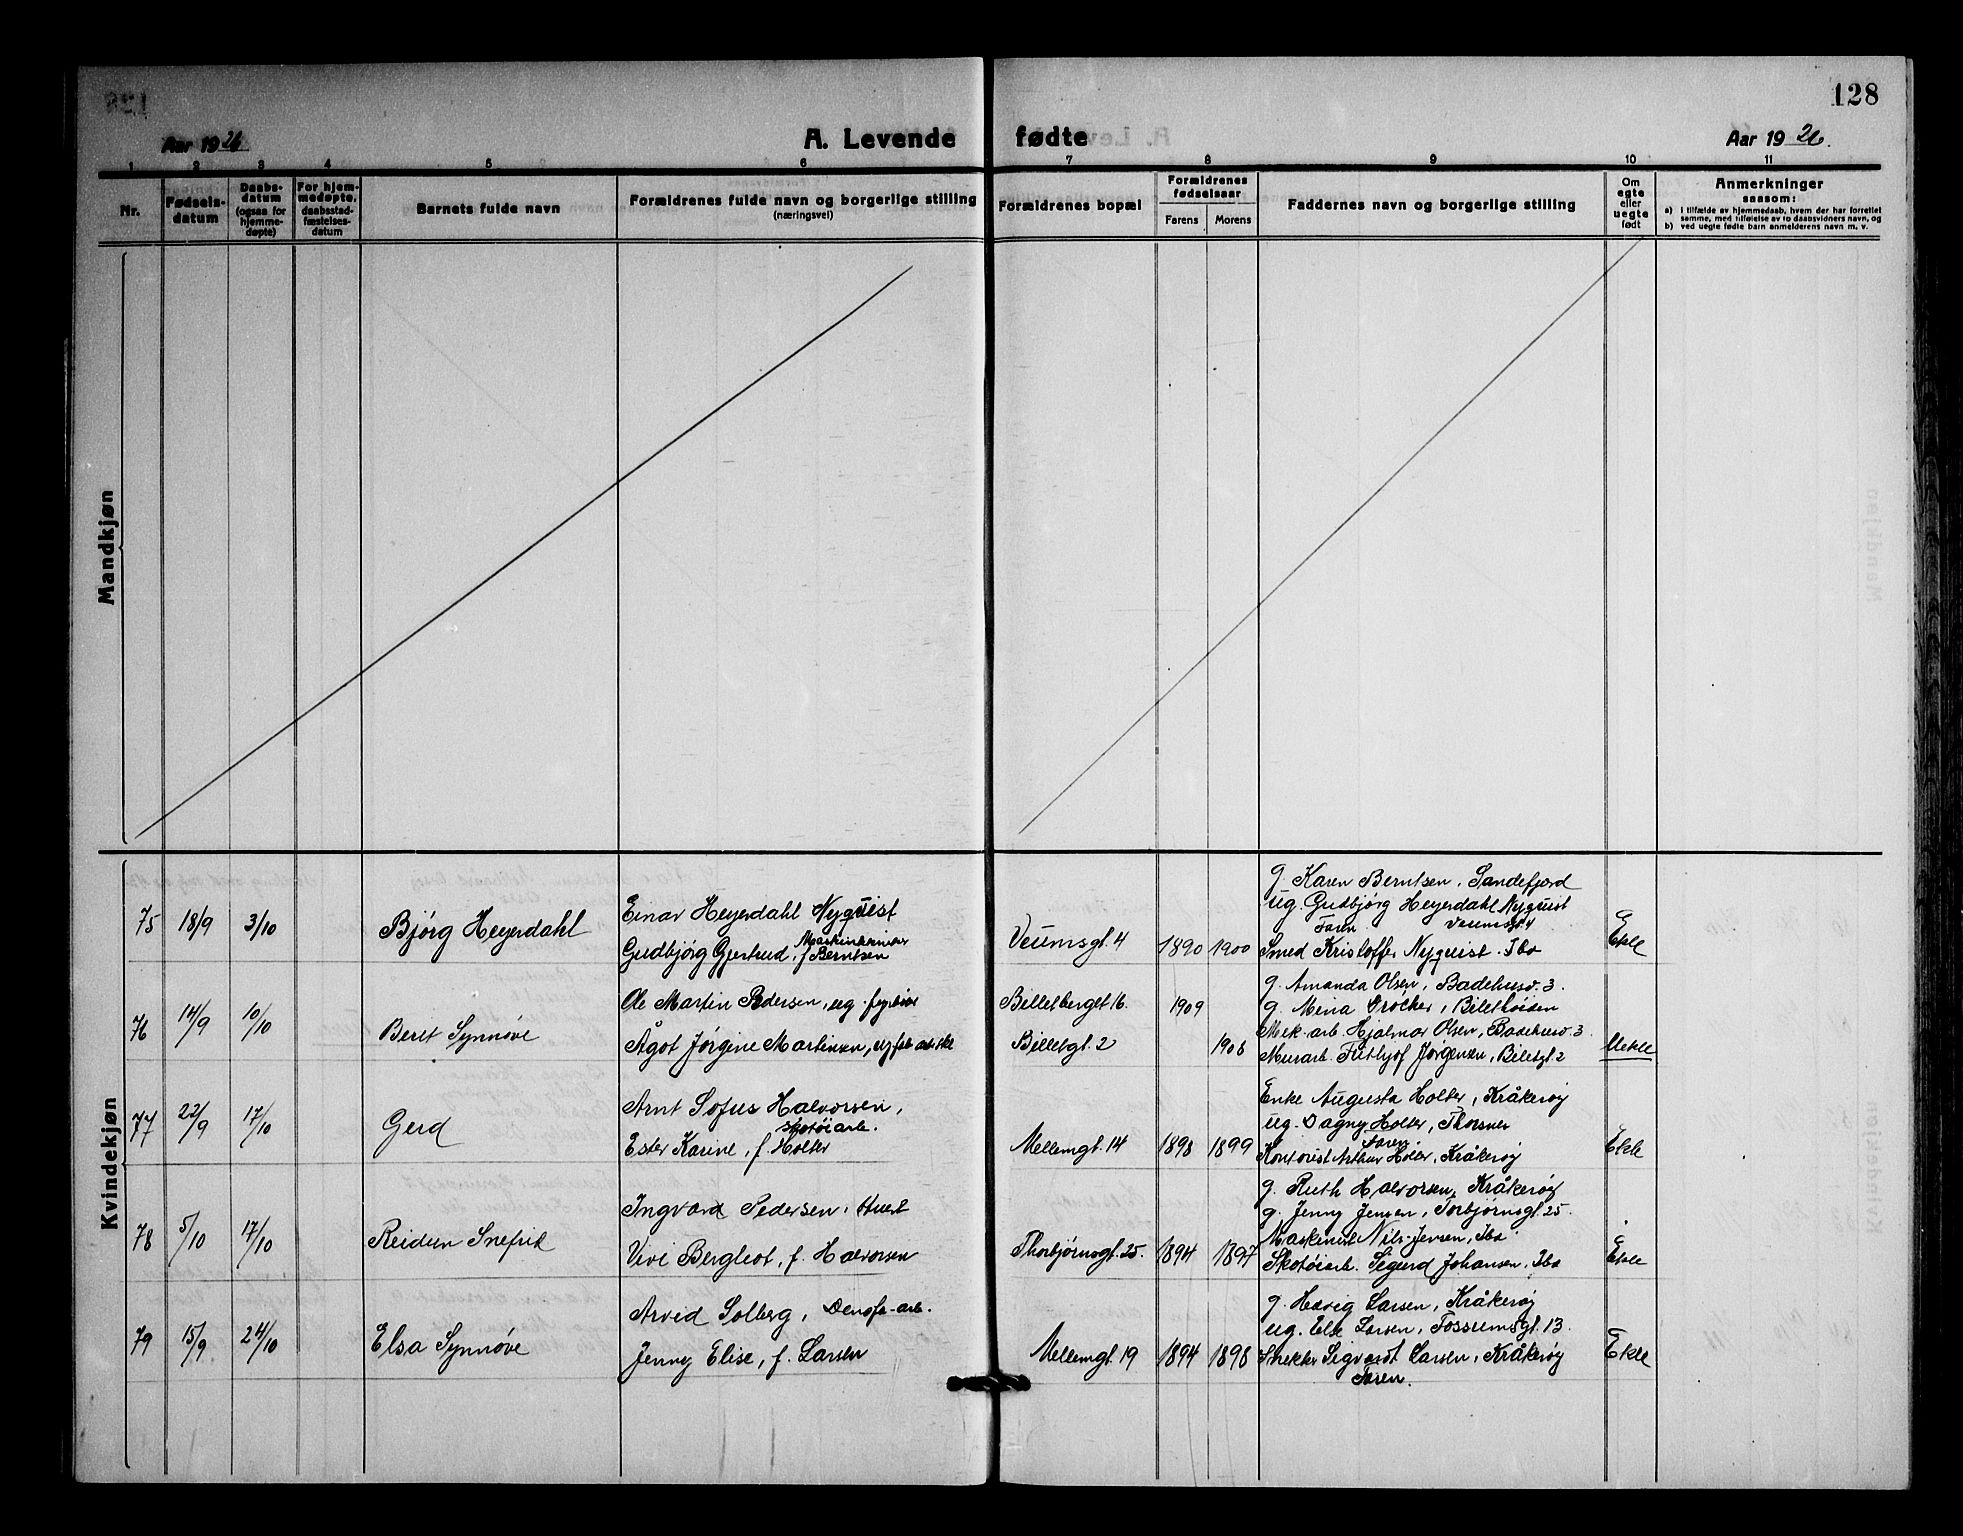 128
Aar 1926
A. Levende fødte
Aar 1926.
1 2 3 4 5 6 7 8 9 10 11
Nr.
Fødsels-
datum
Daabs-
datum
(ogsaa for
hjemme-
døpte)
For hjem-
medøpte,
daabsstad-
fæstelses-
datum
Barnets fulde navn
Forældrenes fulde navn og borgerlige stilling
(næringsvei)
Forældrenes bopæl
Forældrenes
fødselsaar
Farens Morens
Faddernes navn og borgerlige stilling
Om
egte
eller
uegte
født
Anmerkninger
saasom:
a) i tilfælde av hjemmedaab, hvem der har forrettet
samme, med tilføielse av to daabsvidners navn, og
b) ved uegte fødte barn anmelderens navn m. v.
Mandkjøn
Kvindekjøn
75 18/9 3/10
Bjørg Heyerdahl
Einar Heyerdahl Nyquist
Gudbjørg Gjertrud, f. Berntsen
Veumsgt. 4 1890 1900
g. Karen Berntsen, Sandefjord
ug. Gudbjørg Heyerdahl Nyquist
Faren Veumsgt. 4
Smed Kristoffer Nyquist. Ibo
Ekte
76 14/9 10/10
Berit Synnøve
Ole Martin Pedersen, ug. fyrbøter
Ågot Jørgine Martinsen, ug fabr arbske
Billetbergt. 16. 1909
Billetgt. 2 1908
g. Amanda Olsen, Badehusv. 3.
g. Mina Crocker,
Mek. arb. Hjalmar Olsen, Badehusv. 3
Murarb. Futhjof Jørgensen, Biletgt. 2
Uekte
77 22/9 17/10
Gerd
Arnt Sofus Halvorsen,
skotøiarb.
Ester Karine, f. Holter
Mellemgt. 14 1898 1899
Enke Augusta Holter, Kråkerøy
ug. Dagny Holter,
Faren
Kontorist Arthur Holter, Kråkerøy
Ekte
78 5/10 17/10
Reidun Snefrid
Ingvard Pedersen,
Vivi Bergliot, f. Halvorsen
Thorbjørnsgt. 25. 1894 1897
g. Ruth Halvorsen, Kråkerøy
g. Jenny Jensen, Torbjørnsgt. 25.
Maskinist Nils Jensen, Ibo
Skotøiarb. Sigurd Johansen, Ibo
Ekte
79 15/9 24/10
Elsa Synnøve
Arvid Solberg, Denofa-arb.
Jenny Elise, f. Larsen
Mellemgt. 19 1894 1898
g. Hedvig Larsen, Kråkerøy
ug. Else Larsen, Fossumsgt. 13.
Snekker Sigvardt Larsen, Kråkerøy
Faren.
Ekte